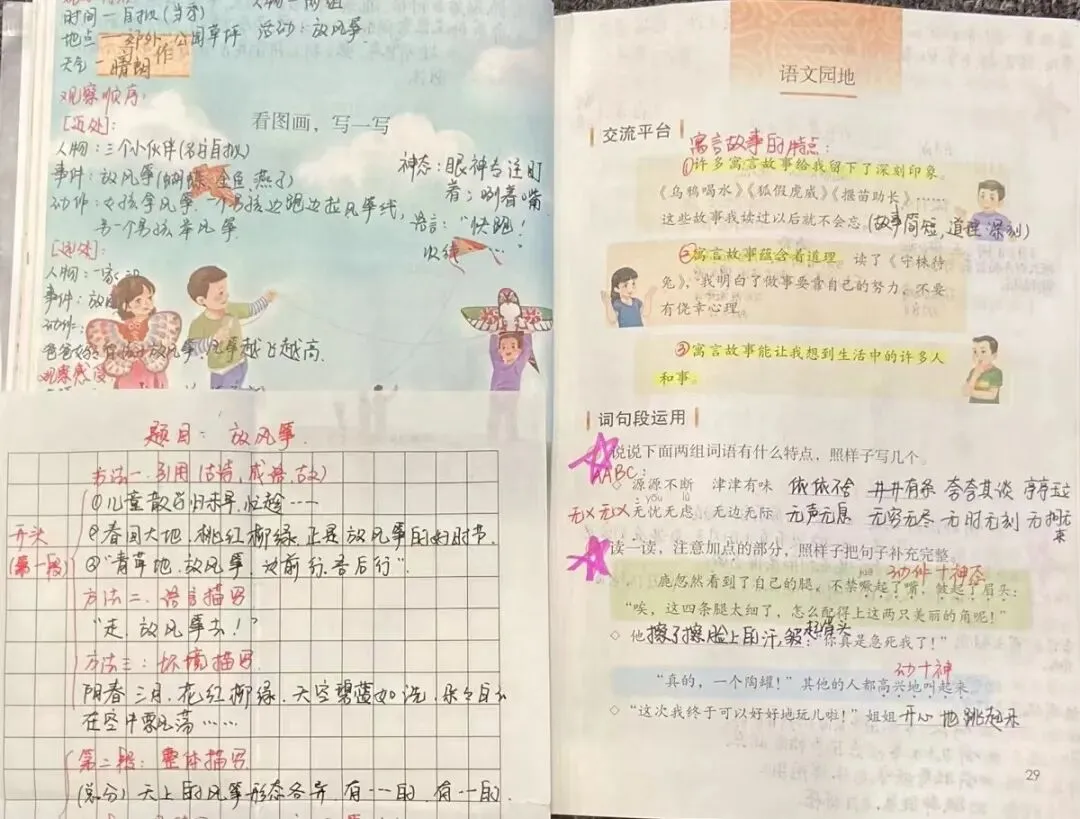 时间一自拟(当天)
地点一郊外 公园草坪 活动:放风筝
习作
天气一晴朗
观察顺序:
[近处]:
看图画，写一写
人物:三个小伙伴(名字自拟)
事件:放风筝(蝴蝶、金鱼、燕子)
动作:女孩拿风筝,一个男孩边跑边拉风筝线,
另一个男孩举风筝
神态:眼神专注盯
着;咧着嘴
语言:"快跑!
[远处]:
人物:一家
事件:放风
动作:
爸爸妈妈 放风筝,风筝越飞越高.
观察感受
题目: 放风筝.
方法一.引用(古诗,成语,古文)
①儿童散学归来早,忙趁……
开头
(第一段)
②春回大地,桃红柳绿,正是放风筝的好时节.
③"青草地,放风筝,汝前行,吾后行".
方法二.语言描写
"走,放风筝去!"
方法三:环境描写
阳春三月,花红柳绿,天空碧蓝如洗,朵朵白云
在空中飘荡……
第二段:整体描写
(总分)天上的风筝形态各异,有一的,有一的.
语文园地
交流平台
寓言故事的特点:
①许多寓言故事给我留下了深刻印象。
《乌鸦喝水》《狐假虎威》《揠苗助长》……
这些故事我读过以后就不会忘(故事简短,道理深刻)
②寓言故事蕴含着道理。读了《守株待
兔》，我明白了做事要靠自己的努力，不要
有侥幸心理。
③寓言故事能让我想到生活中的许多人
和事。
词句段运用
说说下面两组词语有什么特点，照样子写几个。
AABC:
◇ 源源不断 津津有味 依依不舍 井井有条 夸夸其谈 亭亭玉立
yōu lǜ
无X无X 无忧无虑 无边无际 无声无息 无穷无尽 无时无刻 无拘无束
读一读，注意加点的部分，照样子把句子补充完整。
动作+神态
鹿忽然看到了自己的腿，不禁噘起了嘴，皱起了眉头:
"唉，这四条腿太细了，怎么配得上这两只美丽的角呢!"
◇ 他擦了擦脸上的汗,皱起眉头:"你真是急死我了!"
动+神
"真的，一个陶罐!"其他的人都高兴地叫起来
◇ "这次我终于可以好好地玩儿啦!"姐姐开心地跳起来
29